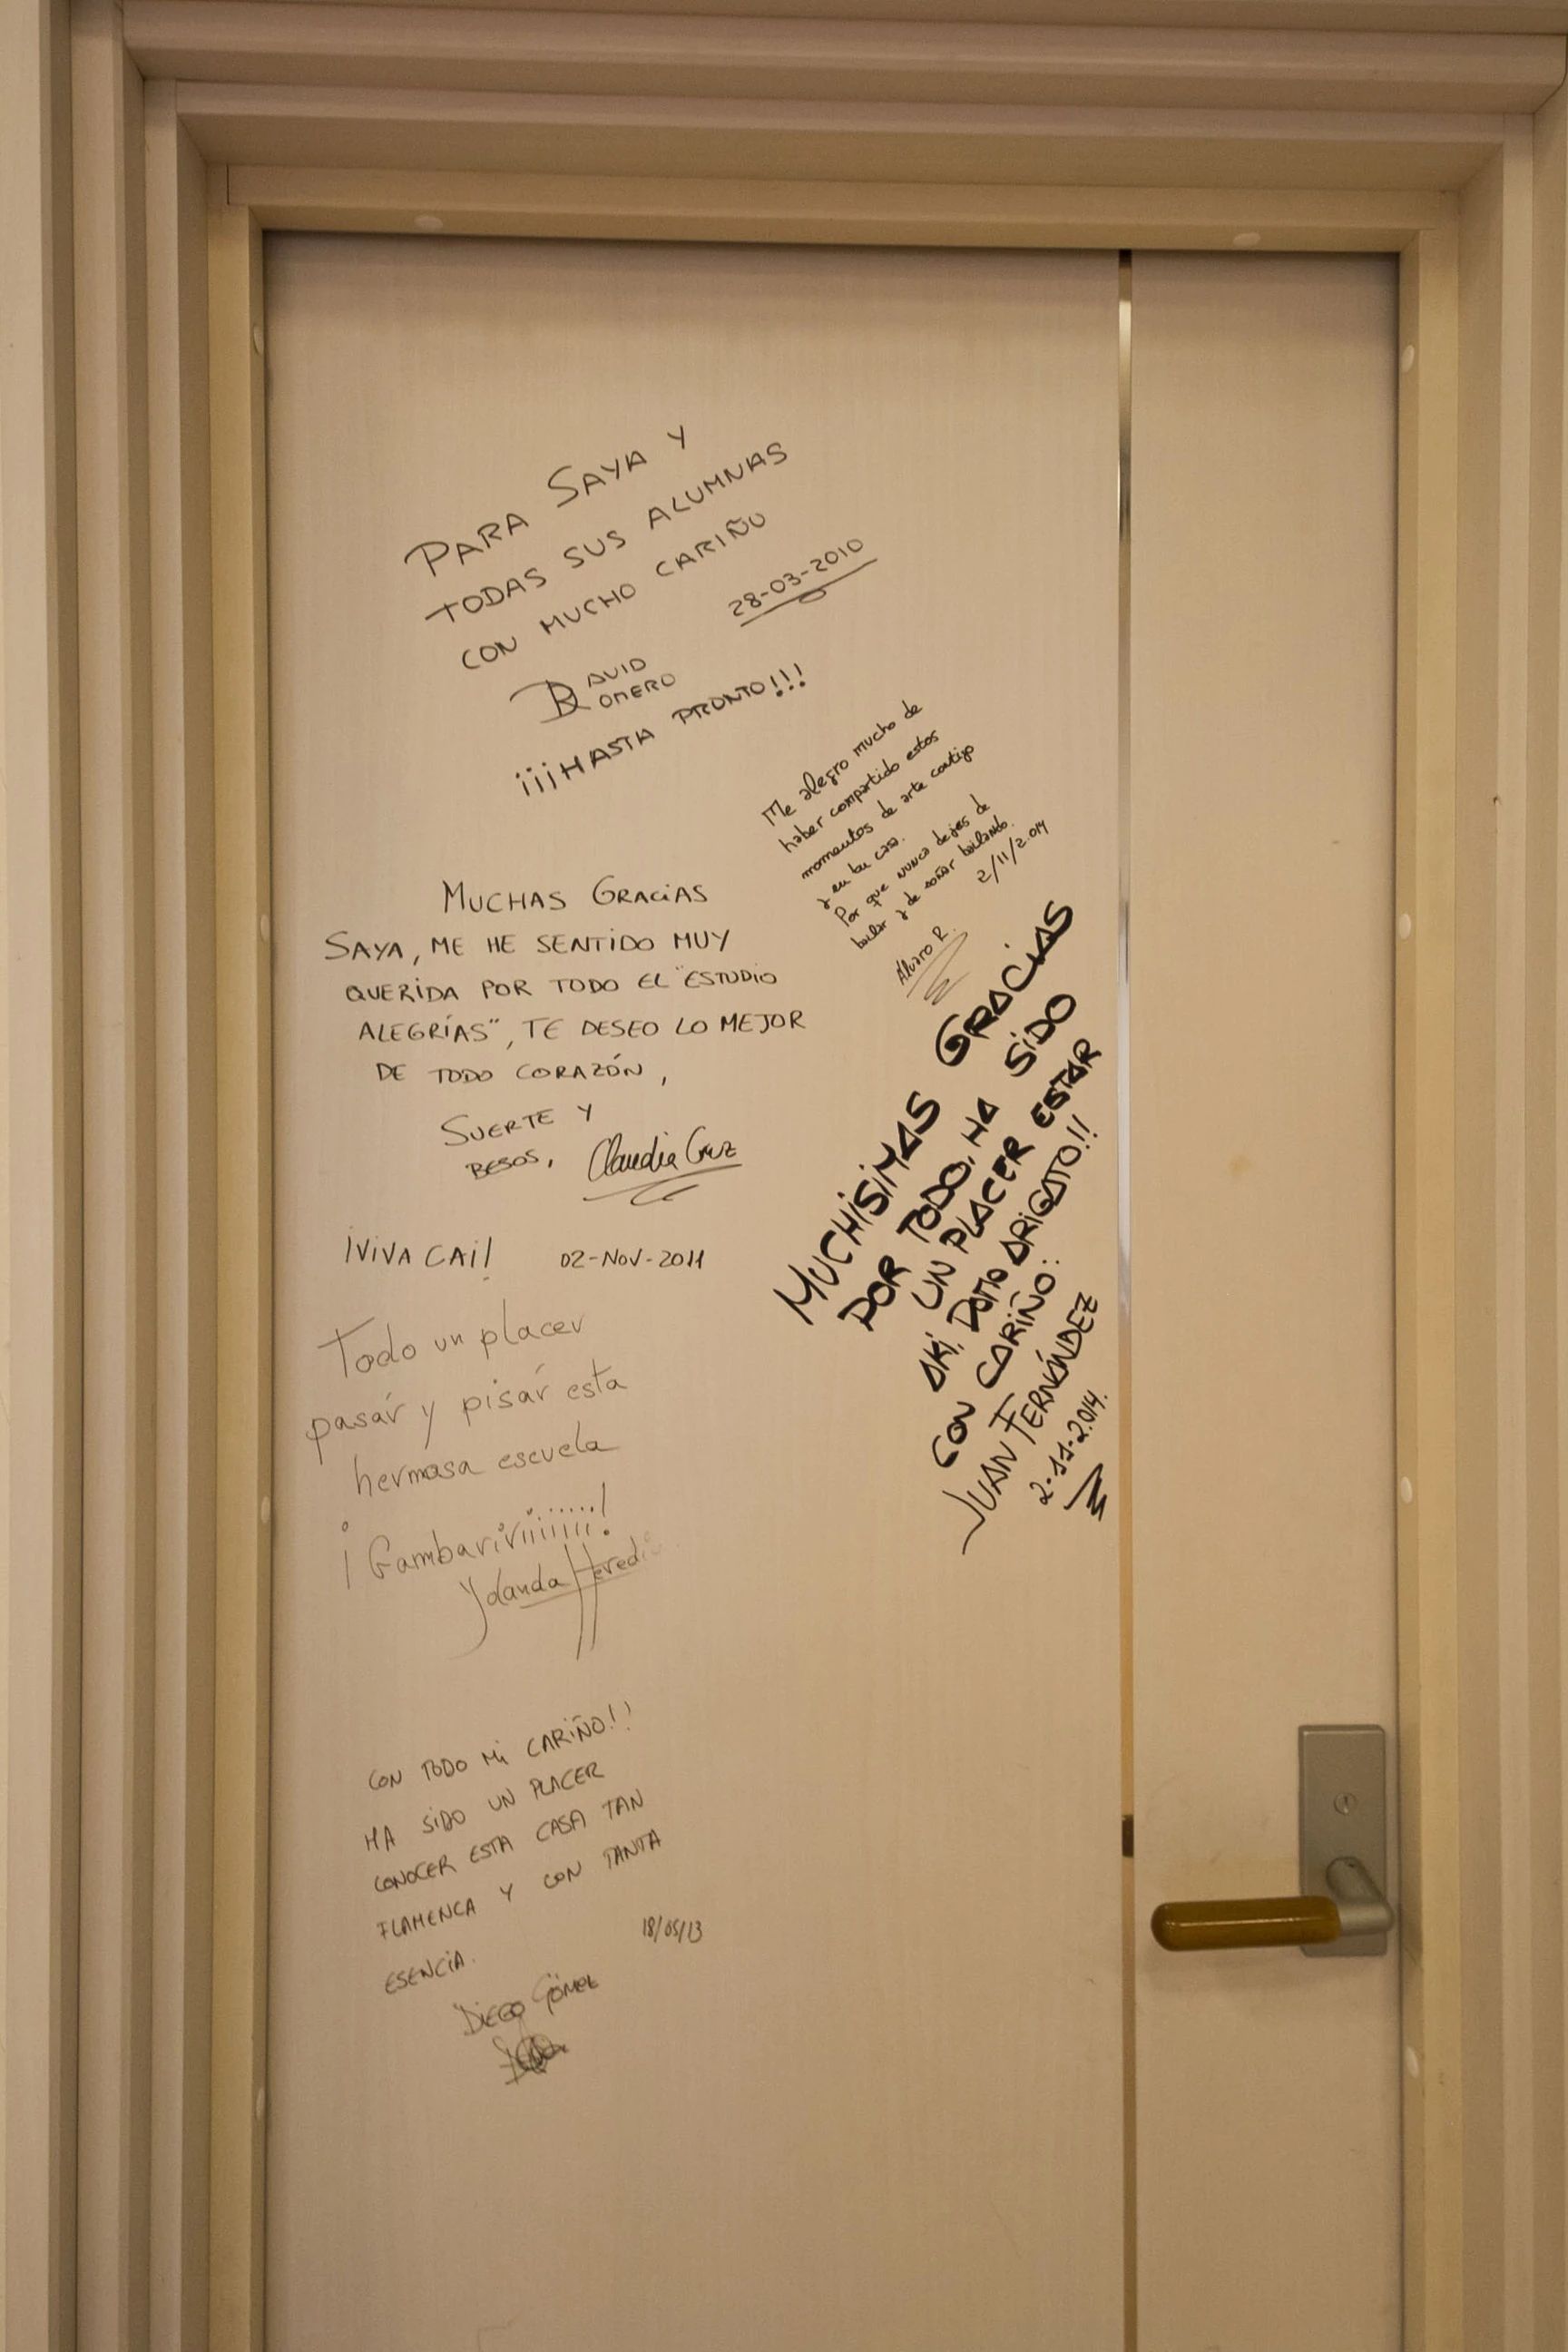 PARA SAYA Y
TODAS SUS ALUMNAS
CON MUCHO CARIÑO
28-03-2010
DAVID
ROMERO
¡¡¡HASTA PRONTO!!!
Me alegro mucho de
haber compartido estos
momentos de arte contigo
y en tu casa.
Por que nunca dejes de
bailar y de soñar bailando.
2/11/2.014
Álvaro R.
MUCHAS GRACIAS
SAYA, ME HE SENTIDO MUY
QUERIDA POR TODO EL "ESTUDIO
ALEGRÍAS", TE DESEO LO MEJOR
DE TODO CORAZÓN,
SUERTE Y
BESOS, Claudia Cruz
¡VIVA CAI! 02-NOV-2011
MUCHÍSIMAS GRACIAS
POR TODO, HA SIDO
UN PLACER ESTAR
AKÍ. DOMO ARIGATO!!
CON CARIÑO:
JUAN FERNÁNDEZ
2-11-2.014.
Todo un placer
pasár y pisár esta
hermosa escuela
¡Gambariviiiiiii!
Yolanda Heredia
CON TODO Mi CARIÑO!!
HA SIDO UN PLACER
CONOCER ESTA CASA TAN
FLAMENCA Y CON TANTA
ESENCIA.
18/05/13
DIEGO GÓMEZ